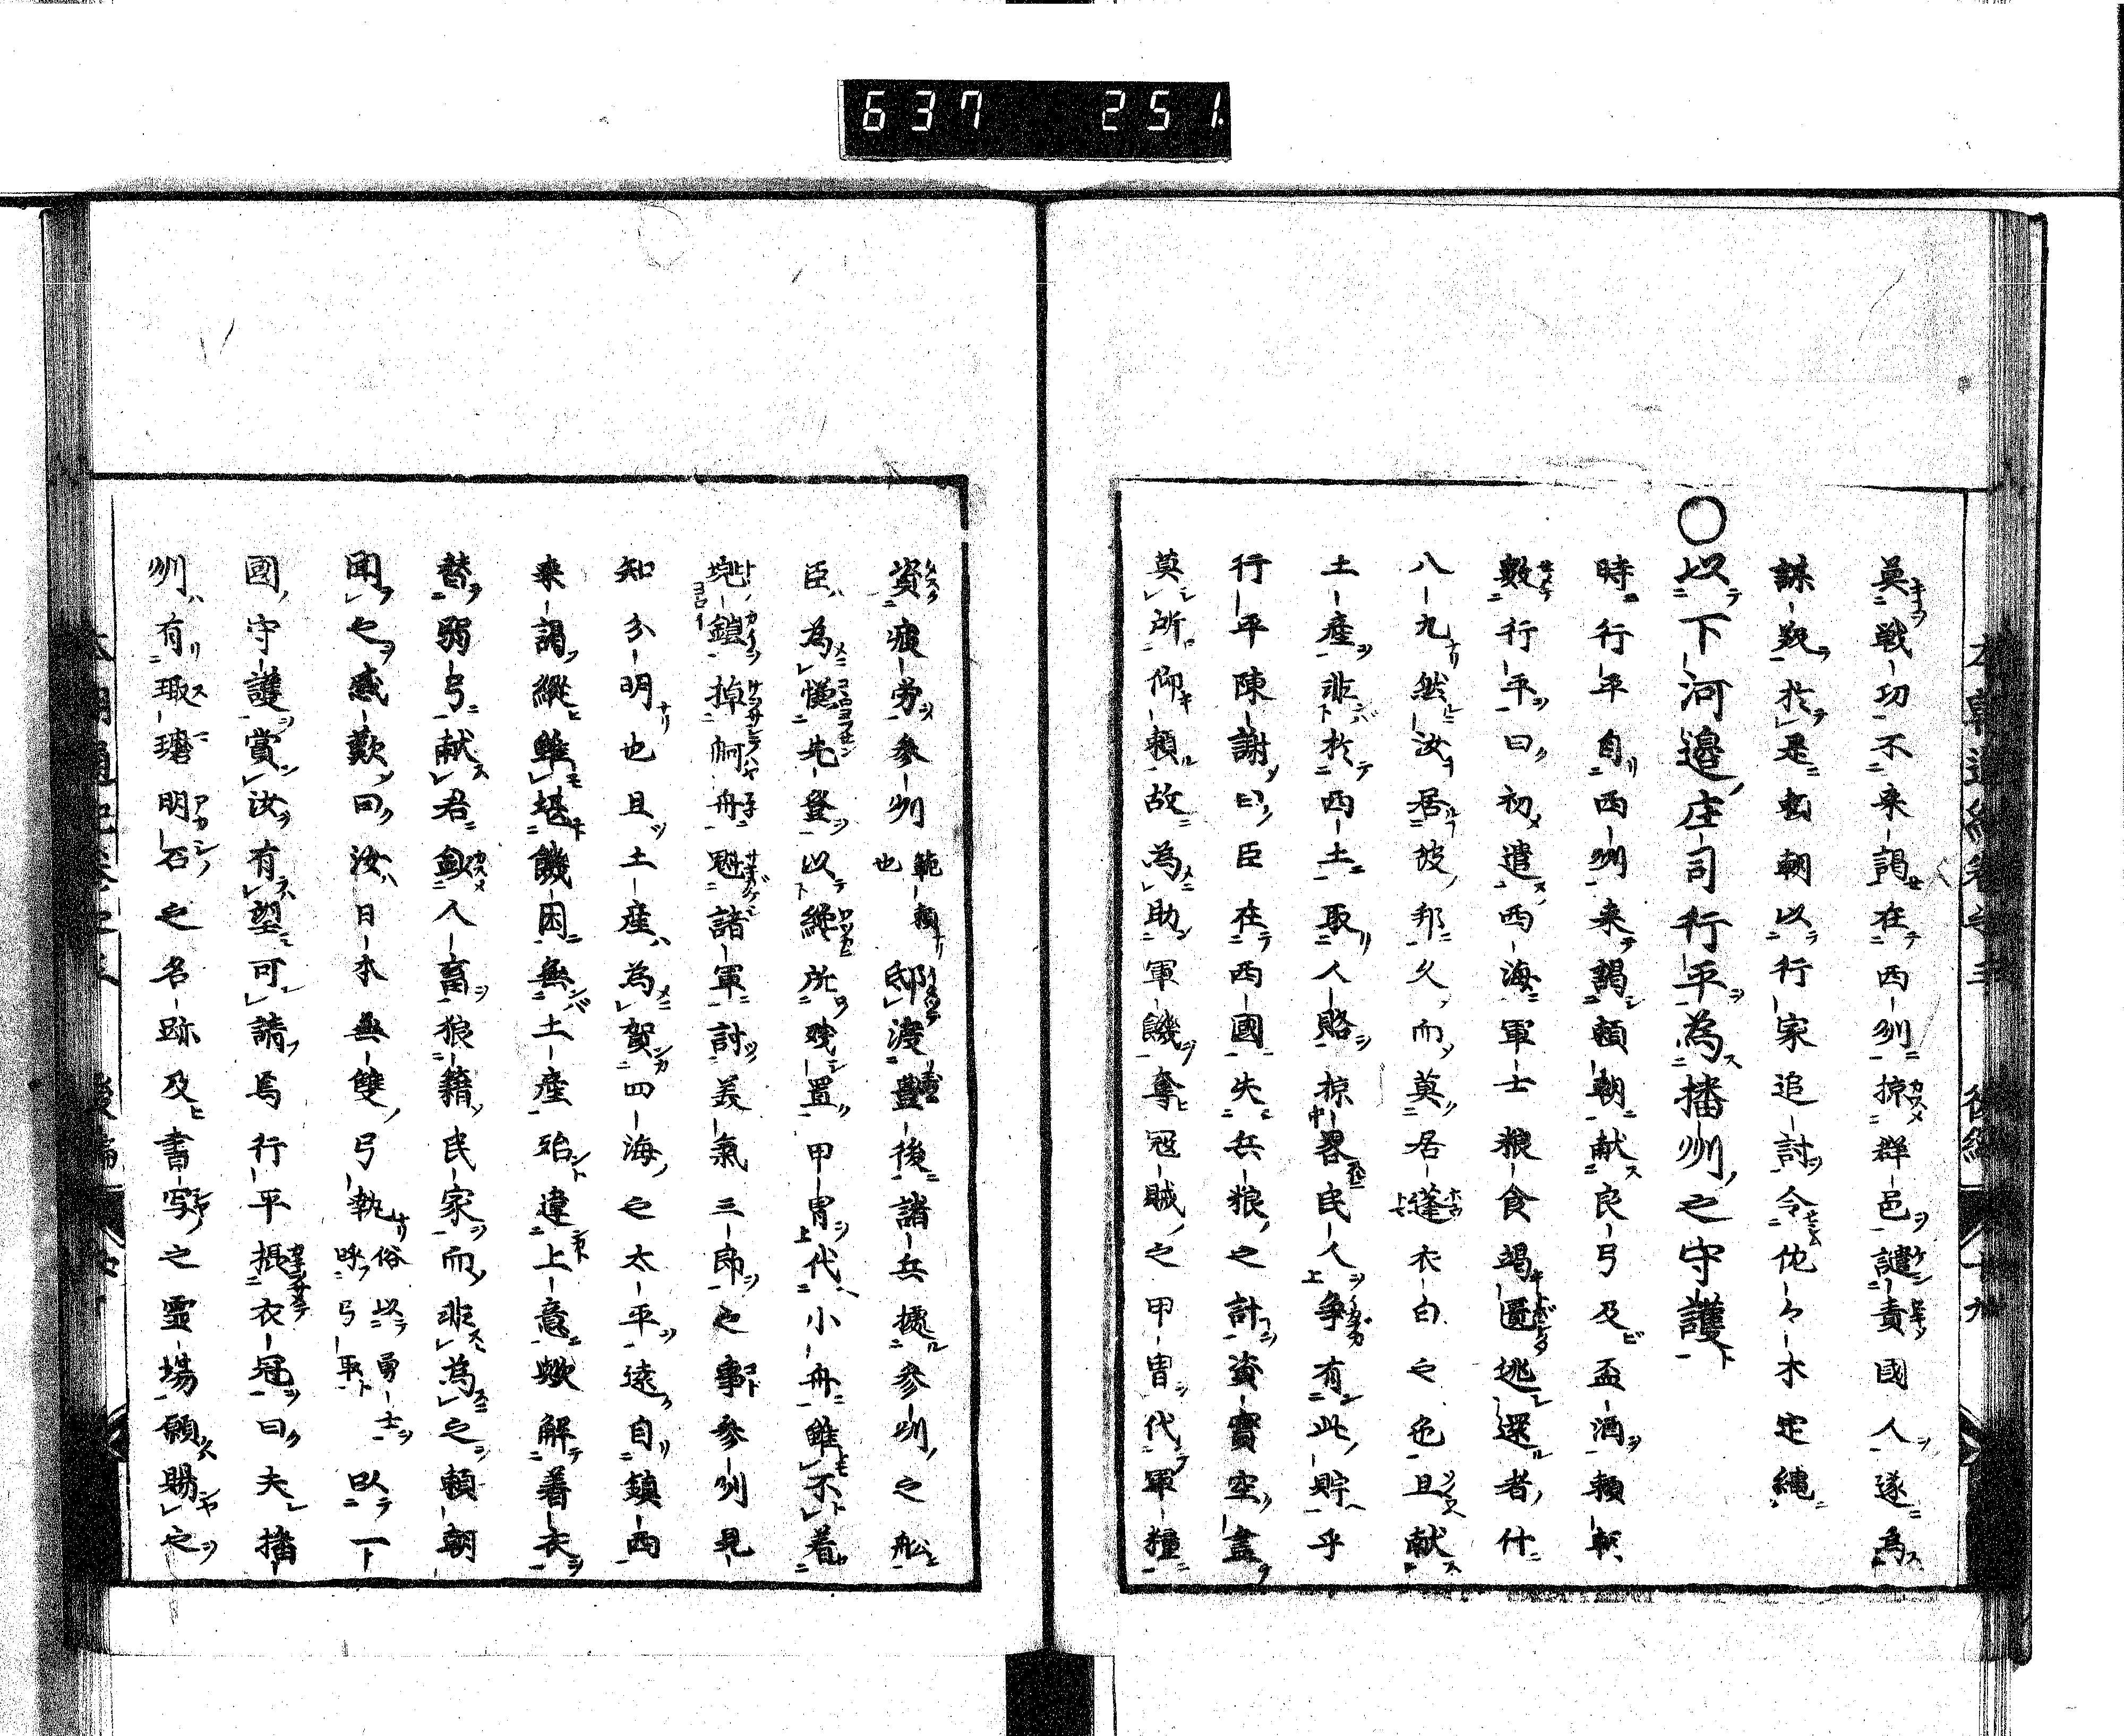 637 251
莫戦功不来謁在西州掠群邑譴責國人遂為
謀叛於是頼朝以行家追討令佗々木定縄
○以下河邉庄司行平為播州之守護
時行平自西州来謁頼朝献良弓及盃酒頼朝
數行平曰初遣西海軍士粮食竭匱逃還者什
八九然汝居彼邦久而莫居蓬衣白之色且献
土産非於西土取人賂掠畧民人争有此貯乎
行平陳謝曰臣在西國失兵粮之計資寳空盡
莫所仰頼故為助軍饑奪冦賊之甲冑代軍糧
資疲労参州範頼也 邸渡豊後諸兵擄参州之舩
臣為慥先登以纔所残置甲冑代小舟雖不着
兜鎧掉舸舟魁諸軍討美氣三郎之事参州見
知分明也且土産為賀四海之太平遠自鎮西
来謁縦雖堪饑困無土産殆違上意歟解着衣
替弱弓献君劒人畜狼籍民家而非為之頼朝
聞之感歎曰汝日本無雙弓執俗以勇士呼弓取 以一
國守護賞汝有望可請焉行平摂衣冠曰夫播
州有瑕瑾明石之名跡及書写之霊場願賜之